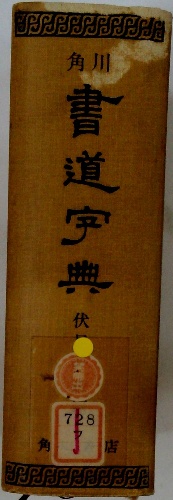 角川
書道字典
伏
728
フ
角 店